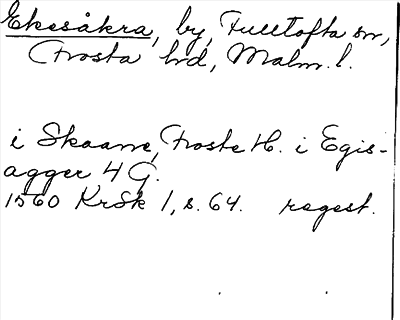 Ekesåkra, by, Fulltofta sn,
Frosta hd, Malm. l.
i Skaane, Froste H. i Egis-
agger 4 G.
1560 KrSk 1, s. 64. regest.